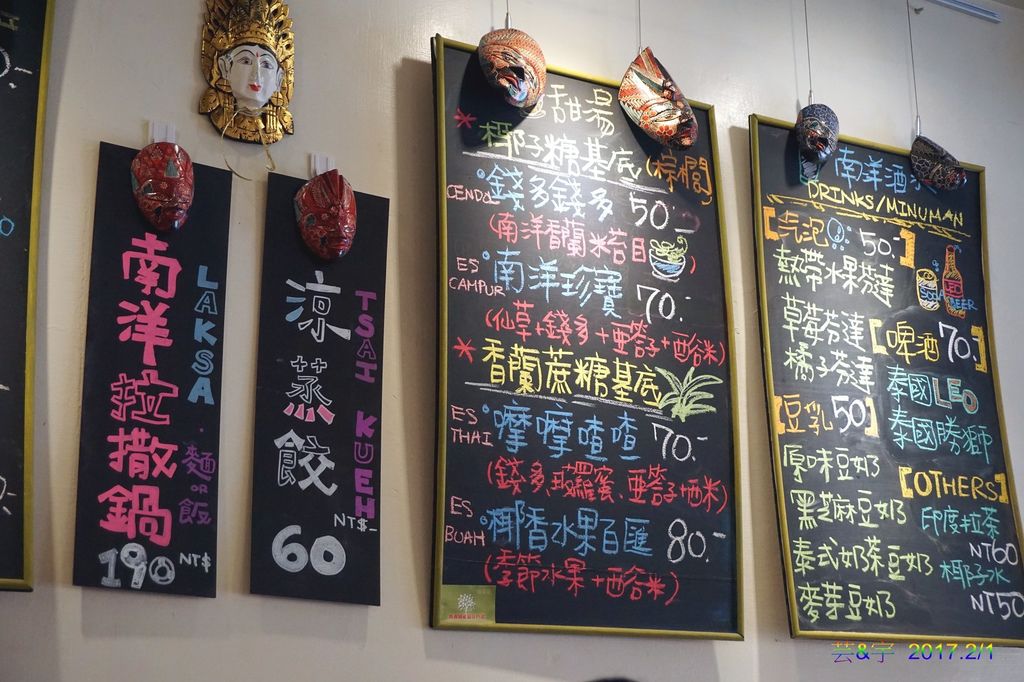 南洋拉撒鍋
LAKSA
麵or飯
190 NT$
涼蒸餃
TSAI KUEH
NT$-
60
甜湯
*椰子糖基底(棕櫚)
CENDOL
錢多錢多 50.-
(南洋香蘭米苔目
ES CAMPUR
南洋珍寶 70.-
(仙草+錢多+亞答子+西谷米)
*香蘭蔗糖基底
ES THAI
摩摩喳喳 70.-
(錢多、菠蘿蜜、亞答子+西米)
ES BUAH
椰香水果百匯 80.-
(季節水果+西谷米)
南洋酒水
DRINKS/MINUMAN
【汽泡 50.-】
熱帶水果芬達
草莓芬達
橘子芬達
SODA
BEER
【啤酒 70.-】
泰國LEO
泰國勝獅
【豆乳 50】
原味豆奶
黑芝麻豆奶
泰式奶茶豆奶
麥芽豆奶
【OTHERS】
印度拉茶
NT60
椰子水
NT50
芸&宇 2017.2/1